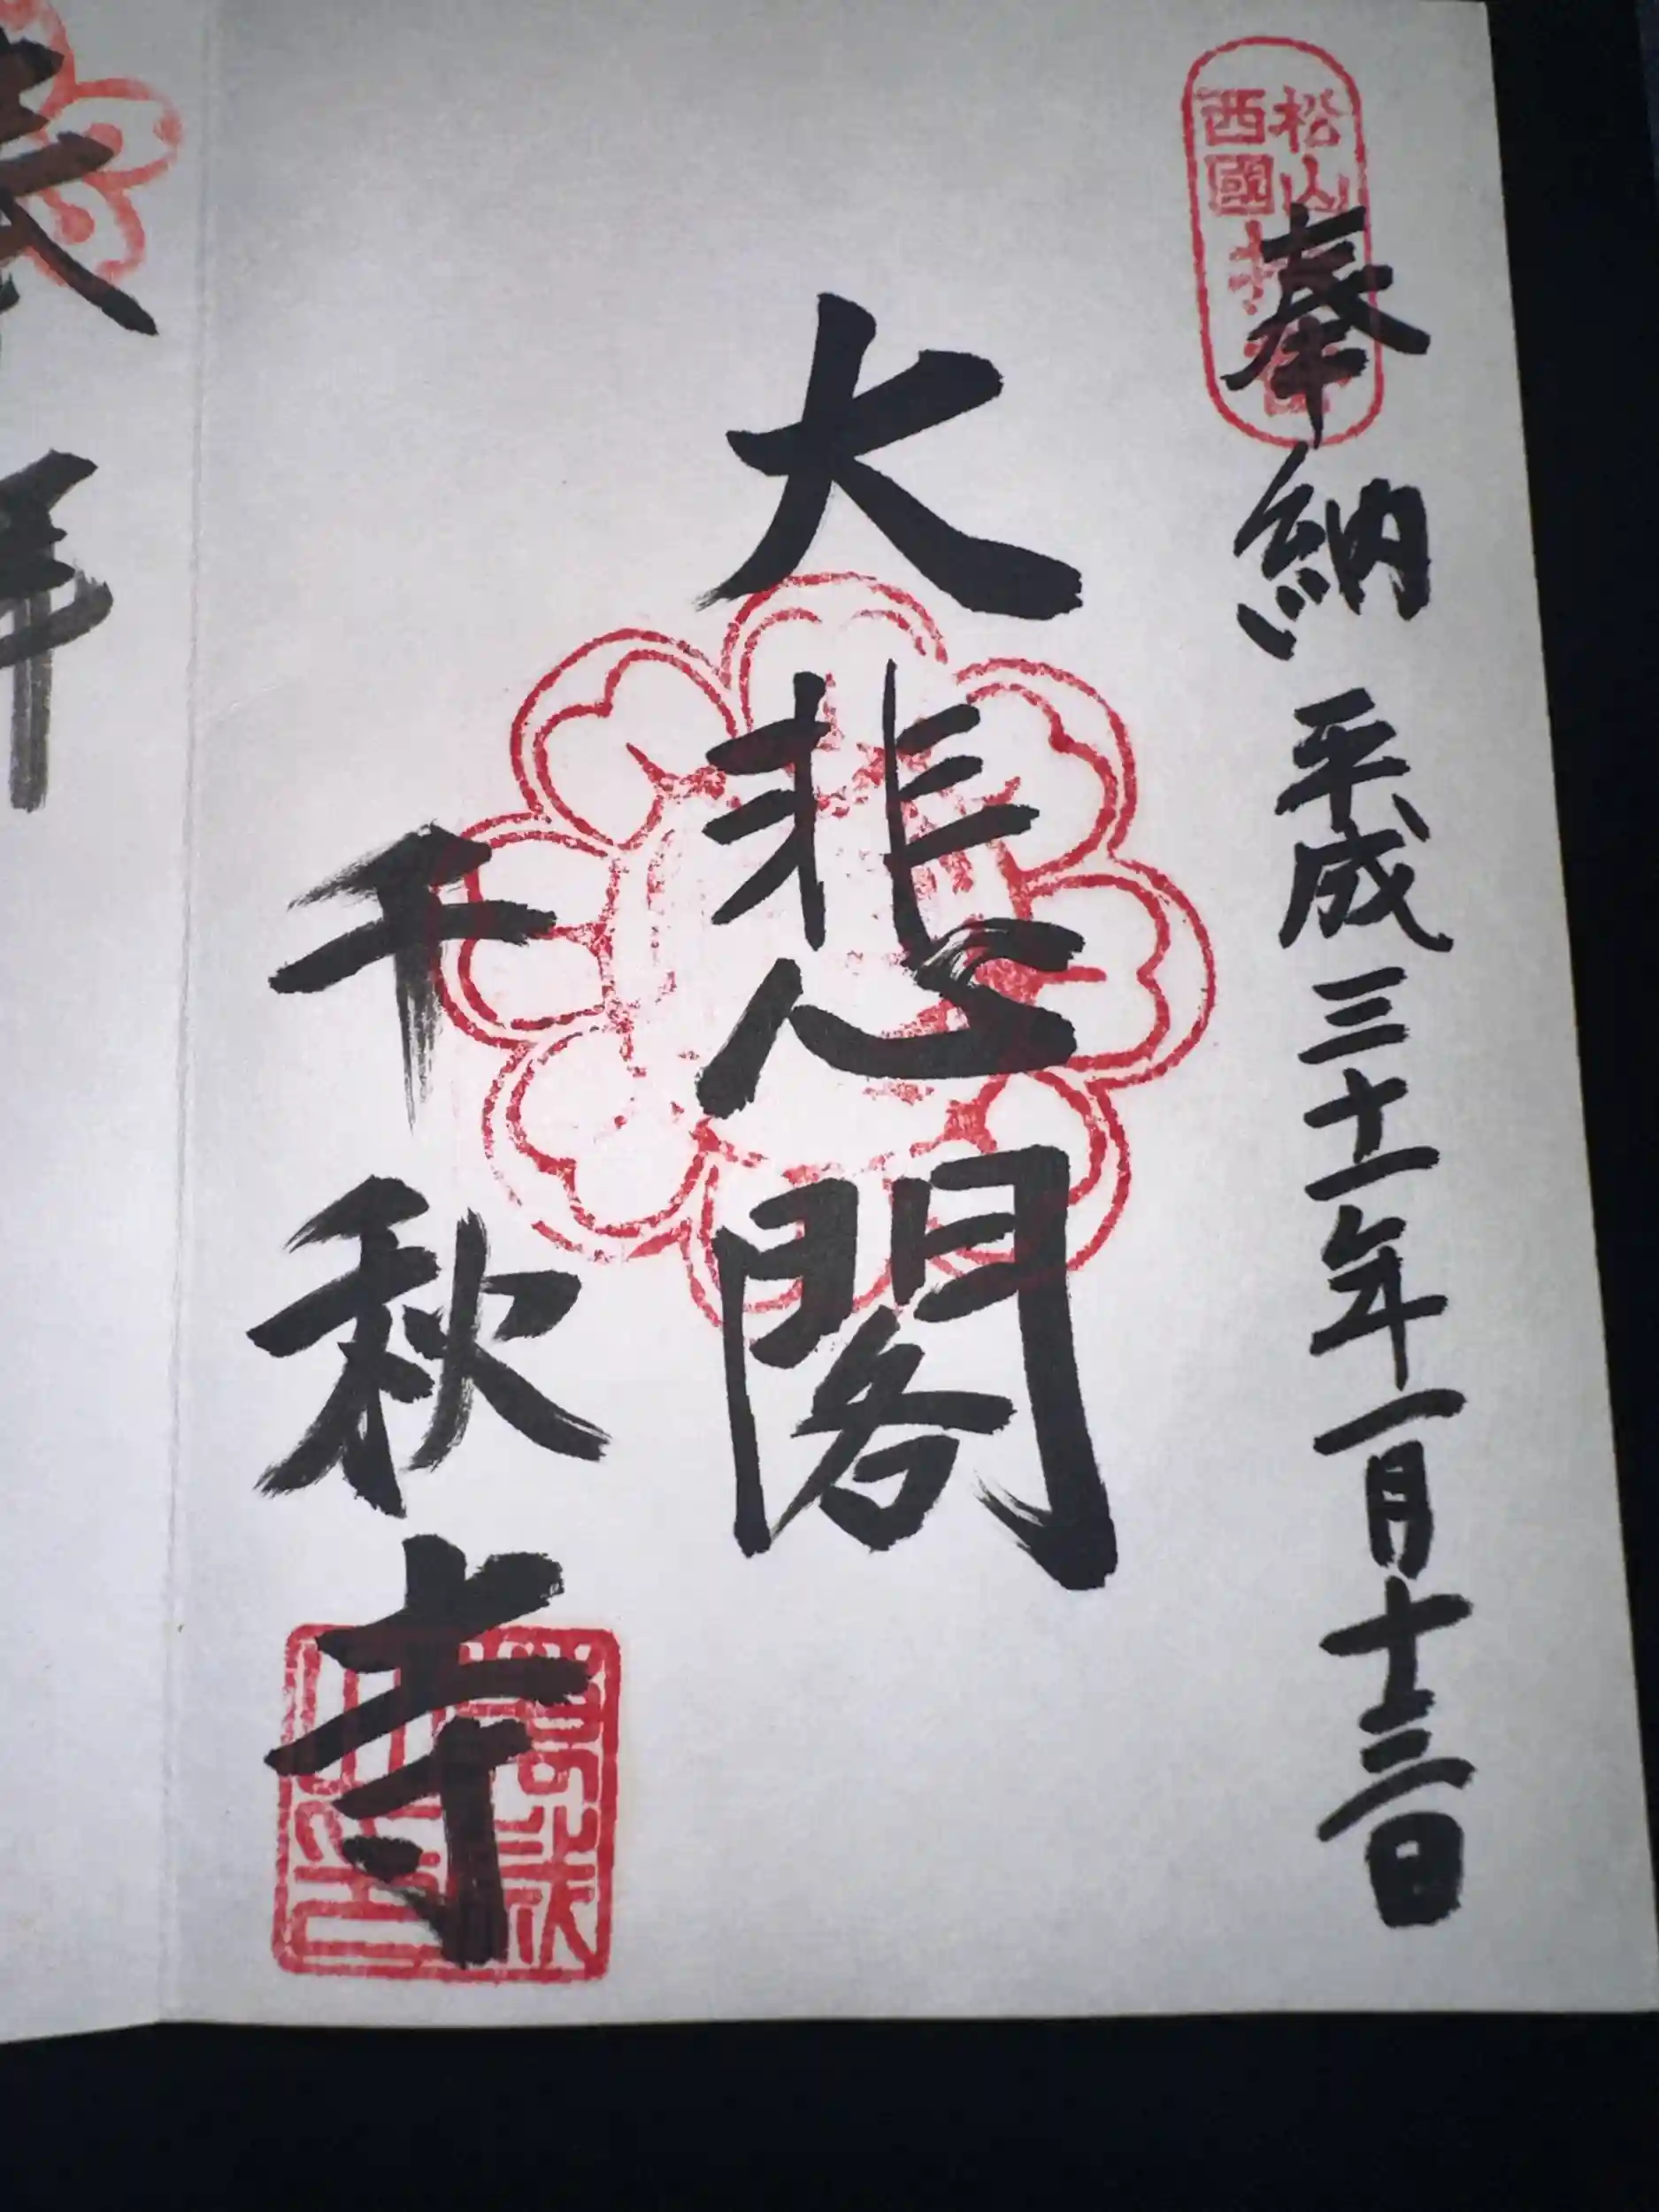 松山
西國
奉納 平成三十一年一月十三日
大悲閣
千秋寺